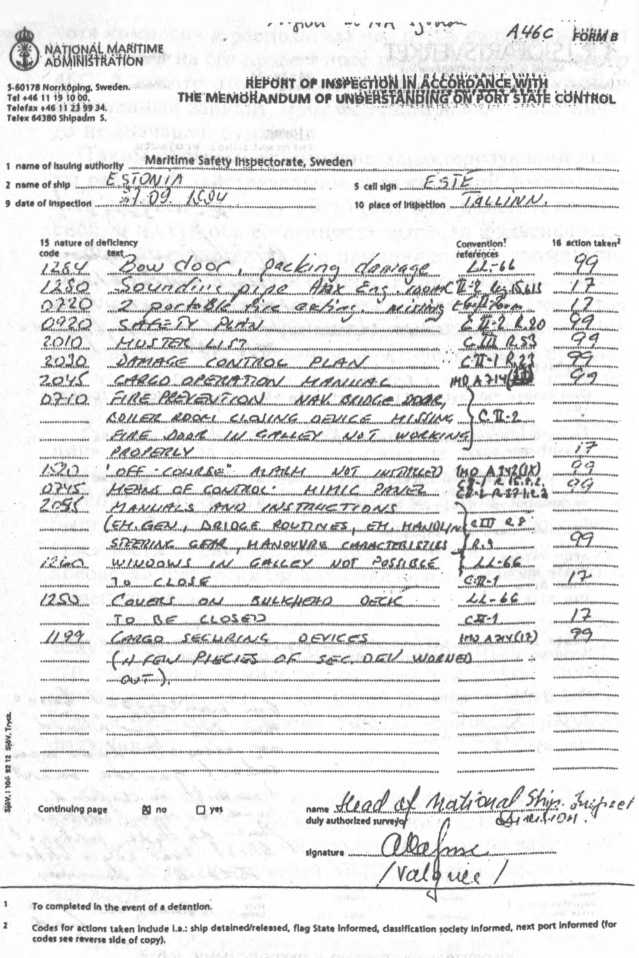 A46C FORM B
NATIONAL MARITIME
ADMINISTRATION
S-60178 Norrköping, Sweden.
Tel +46 11 19 10 00.
Telefax +46 11 23 99 34.
Telex 64380 Shipadm S.
REPORT OF INSPECTION IN ACCORDANCE WITH
THE MEMORANDUM OF UNDERSTANDING ON PORT STATE CONTROL
1 name of issuing authority Maritime Safety Inspectorate, Sweden
2 name of ship ESTONIA 5 call sign ESTE
9 date of inspection 09. 1994 10 place of inspection TALLINN.
15 nature of deficiency Convention¹ 16 action taken²
code text references
1284 Bow door, packing damage LL-66 99
1280 Sounding pipe Eng. room C II-2 17
0720 2 portable fire missing 17
0920 SAFETY PLAN C II-2 R.20 99
2010 MUSTER LIST C III R.53 99
2030 DAMAGE CONTROL PLAN C II-1 R.23 99
2045 CARGO OPERATION MANUAL IMO A714 99
0710 FIRE PREVENTION NAV. BRIDGE DOOR,
BOILER ROOM CLOSING DEVICE MISSING C II-2
FIRE DOOR IN GALLEY NOT WORKING
PROPERLY 17
1520 "OFF-COURSE" ALARM NOT INSTALLED IMO A342(IX) 99
0745 MEANS OF CONTROL. MIMIC PANEL 99
2055 MANUALS AND INSTRUCTIONS
(EM.GEN, BRIDGE ROUTINES, EM. HANDLIN C III R 8
STEERING GEAR, MANOUVRE CHARACTERISTIES R.9 99
1260 WINDOWS IN GALLEY NOT POSSIBLE LL-66
TO CLOSE C II-1 17
1250 COVERS ON BULKHEAD DECK LL-66
TO BE CLOSED C II-1 17
1199 CARGO SECURING DEVICES IMO A714(17) 99
(A FEW PIECIES OF SEC.DEV WORNED
OUT).
Continuing page no yes
name Head of National Ship. Inspect
duly authorized surveyor Division.
signature
/Valgma/
1 To completed in the event of a detention.
2 Codes for actions taken include i.a.: ship detained/released, flag State informed, classification society informed, next port informed (for
codes see reverse side of copy).
SjöV, 1104 92 12 SjöV. Tryck.